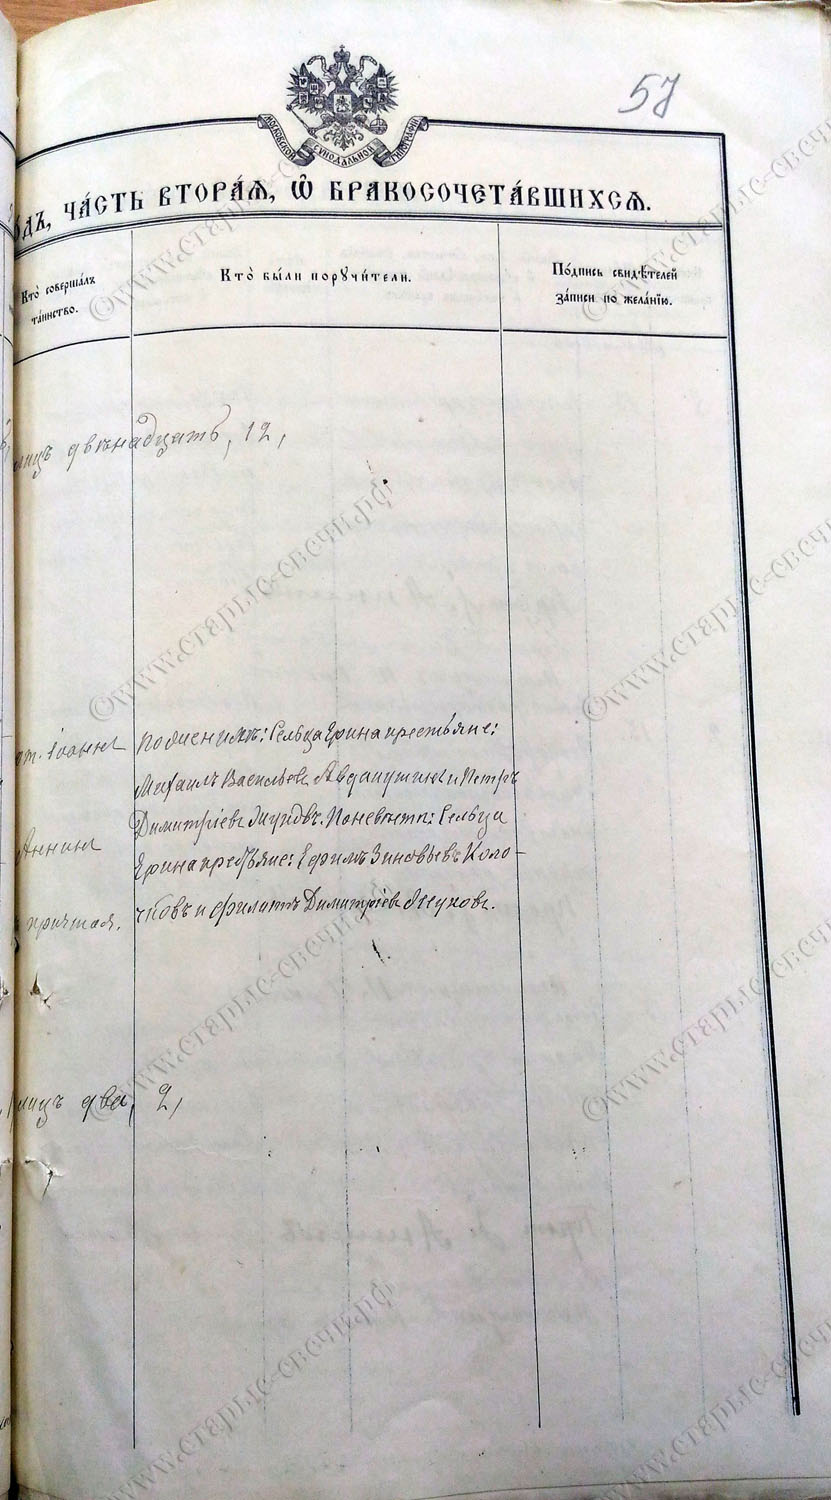 57
МОСКОВСКОЙ СѴНОДАЛЬНОЙ ТИПОГРАФІИ
ДЪ, ЧА́СТЬ ВТОРА́Я, Ѡ҆ БРАКОСОЧЕТА́ВШИХСЯ.
Кто̀ соверша́лъ
та́инство.
Кто̀ бы́ли порꙋчи́тели.
По́дпись свидѣ́телей
за́писи по жела́нію.
лицъ двѣнадцать, 12,
Іоаннъ
Аннинъ
причтая.
По женихѣ: Сельца Ерина крестьяне:
Михаилъ Васильевъ Авданушин и Петръ
Димитріевъ Жуковъ. По невѣстѣ: Сельца
Ерина крестьяне: Ефимъ Зиновьевъ Коло-
чковъ и Филиппъ Димитріевъ Жуковъ.
лицъ два, 2,
©www.старые-свечи.рф